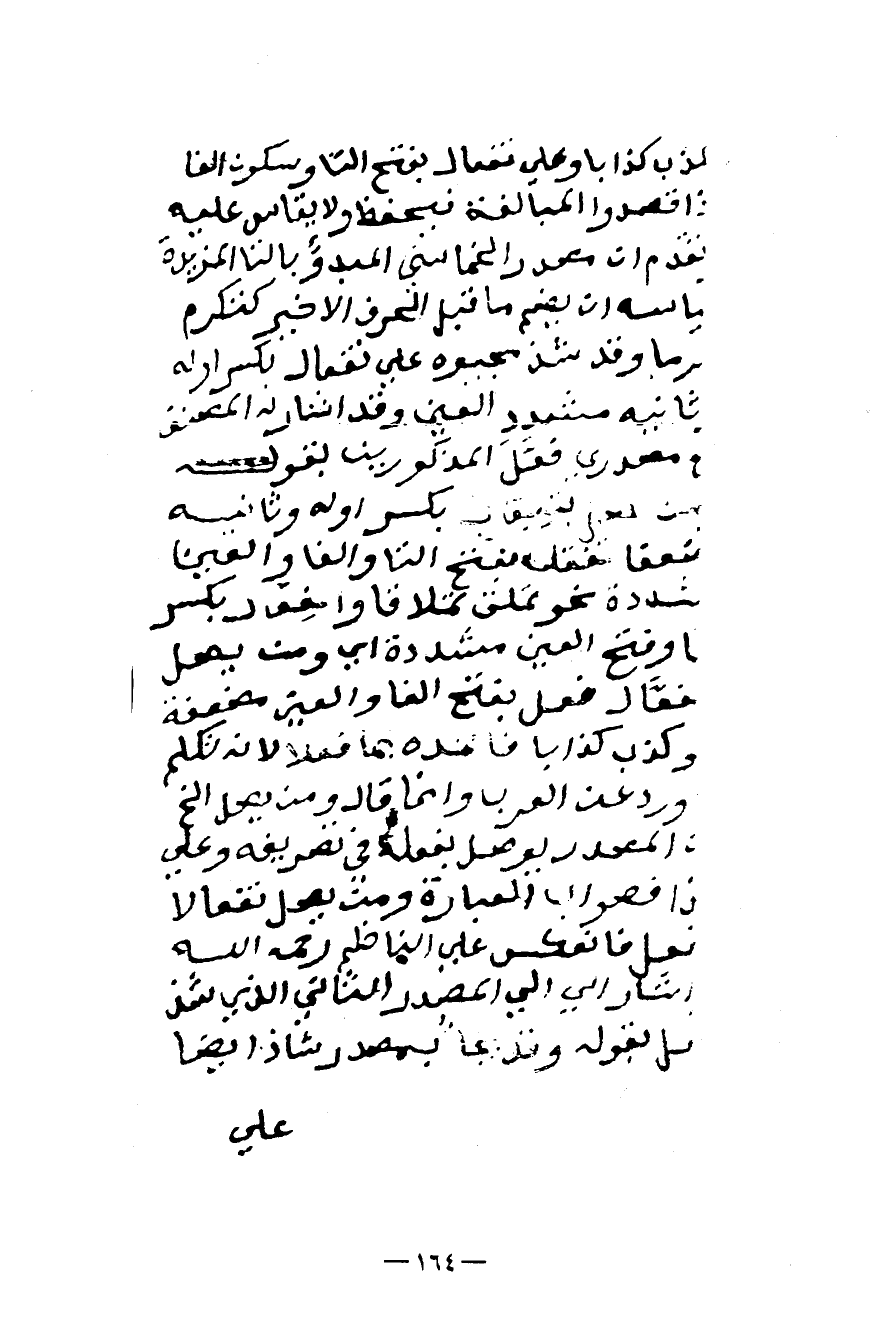 كذب كذابا وعلي تفعال بفتح التا وسكون الفا
ذا قصدوا المبالغة فيحفظ ولا يقاس عليه
تقدم ان مصدر الخماسي المبدؤ بالتا المزيدة
ياسه ان يضم ما قبل الحرف الاخير كتكرم
رما وقد شذ مجيوه علي تفعال بكسر اوله
ثانيه مشدد العين وقد اشار له المصنف
مصدري فعل المذكورين بقوله
بكسر اوله وثانيه
تفعل بفتح التا والفا والعين
شددة نحو تملق تملاقا والفعال بكسر
ا وفتح العين مشددة اي ومن يصل
فعال فعل بفتح الفا والعين مخففة
وكذب كذابا فا بما فعلا لانه تكلم
ورد عن العرب وانما قال ومن يصل الخ
ن المصدر يوصل بفعله في تصريفه وعلي
ذا فصواب العبارة ومن يصل تفعالا
تفعل فانعكس علي الناظم رحمه الله
اشار الي المصدر الثاني الذي شذ
بقوله وقد بمصدر شاذ ايضا
علي
— ١٦٤ —